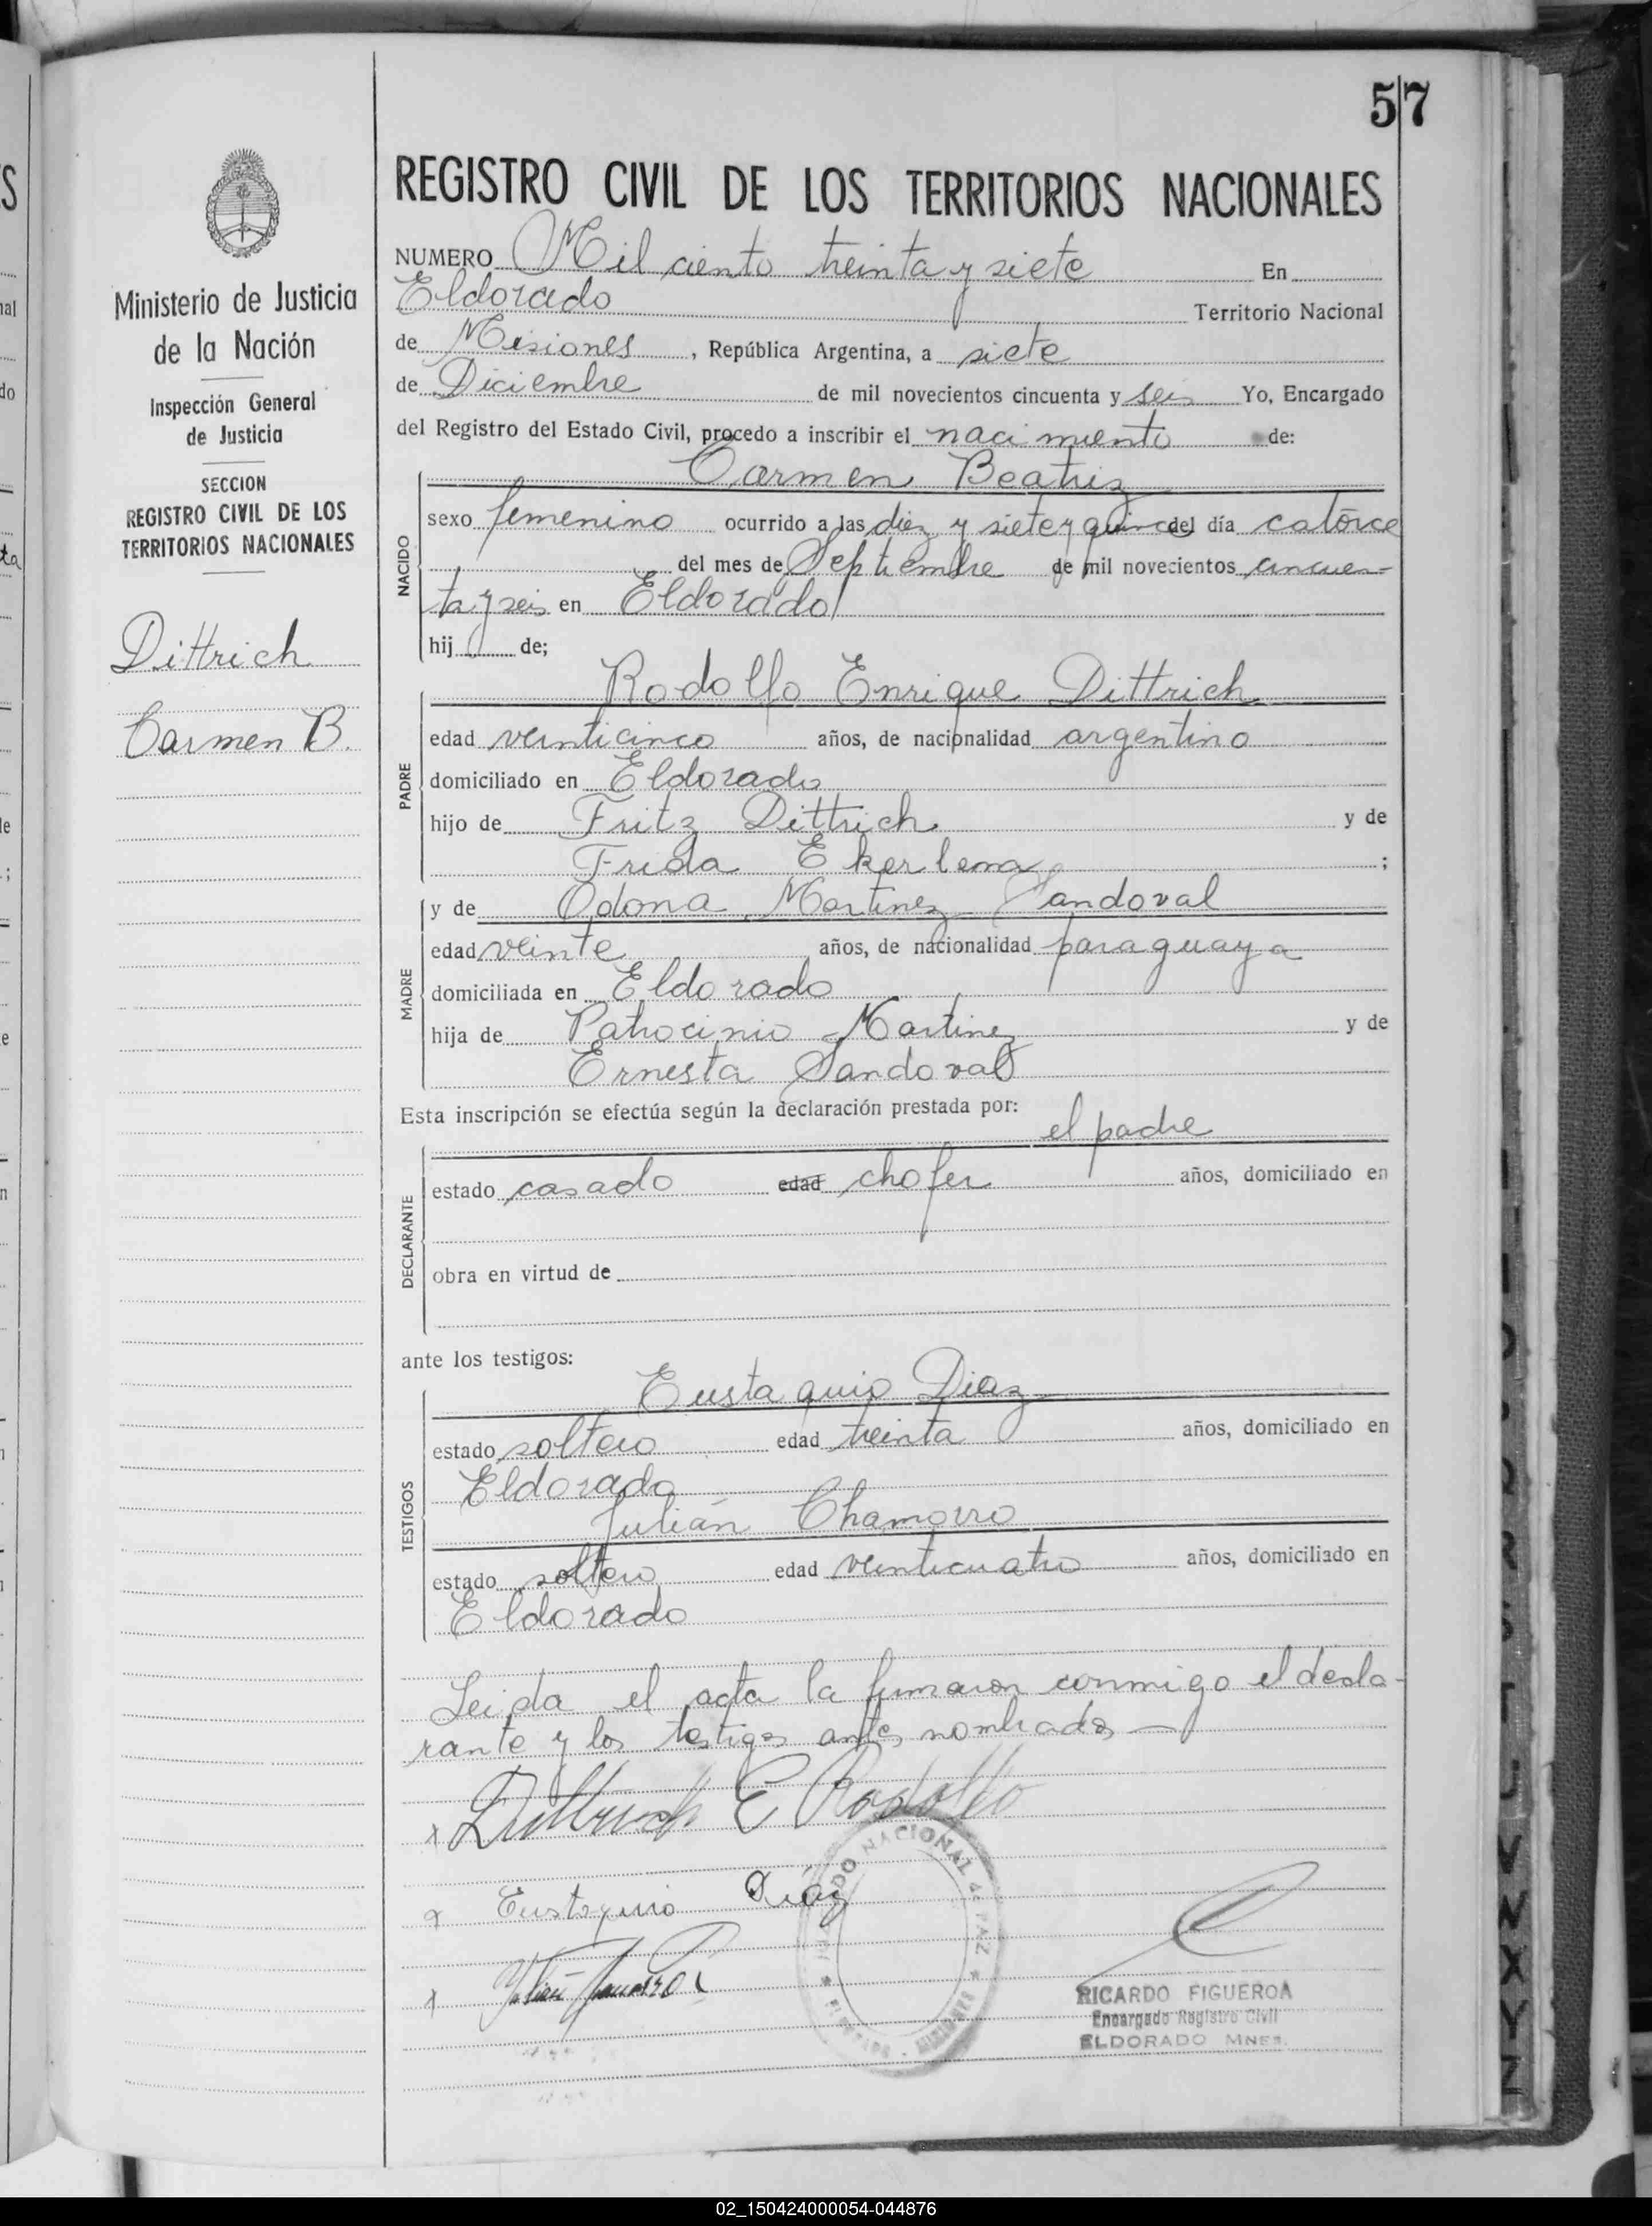 57
REGISTRO CIVIL DE LOS TERRITORIOS NACIONALES
NUMERO Mil ciento treinta y siete En
Eldorado Territorio Nacional
de Misiones, República Argentina, a siete
de Diciembre de mil novecientos cincuenta y seis Yo, Encargado
del Registro del Estado Civil, procedo a inscribir el nacimiento de:
Carmen Beatriz
NACIDO
sexo femenino ocurrido a las diez y siete y quince del día catorce
del mes de Septiembre de mil novecientos cincuen-
ta y seis en Eldorado
hij de;
Rodolfo Enrique Dittrich
PADRE
edad veinticinco años, de nacionalidad argentino
domiciliado en Eldorado
hijo de Fritz Dittrich y de
Frida Ekerlema ;
y de Odona Martinez Sandoval
MADRE
edad veinte años, de nacionalidad paraguaya
domiciliada en Eldorado
hija de Patrocinio Martinez y de
Ernesta Sandoval
Esta inscripción se efectúa según la declaración prestada por:
el padre
DECLARANTE
estado casado edad chofer años, domiciliado en
obra en virtud de
ante los testigos:
Eustaquio Diaz
TESTIGOS
estado soltero edad treinta años, domiciliado en
Eldorado
Julián Chamorro
estado soltero edad veinticuatro años, domiciliado en
Eldorado
Leida el acta la firmaron conmigo el decla-
rante y los testigos antes nombrados
x Dittrich E Rodolfo
x Eustaquio Diáz
x
JUZGADO NACIONAL de PAZ * ELDORADO - MISIONES *
RICARDO FIGUEROA
Encargado Registro Civil
ELDORADO MNES.
Ministerio de Justicia
de la Nación
Inspección General
de Justicia
SECCION
REGISTRO CIVIL DE LOS
TERRITORIOS NACIONALES
Dittrich
Carmen B.
02_150424000054-044876